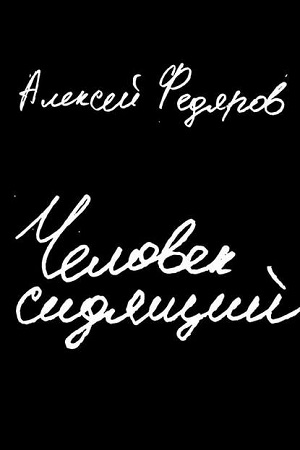 Алексей Федяров
Человек
сидящий